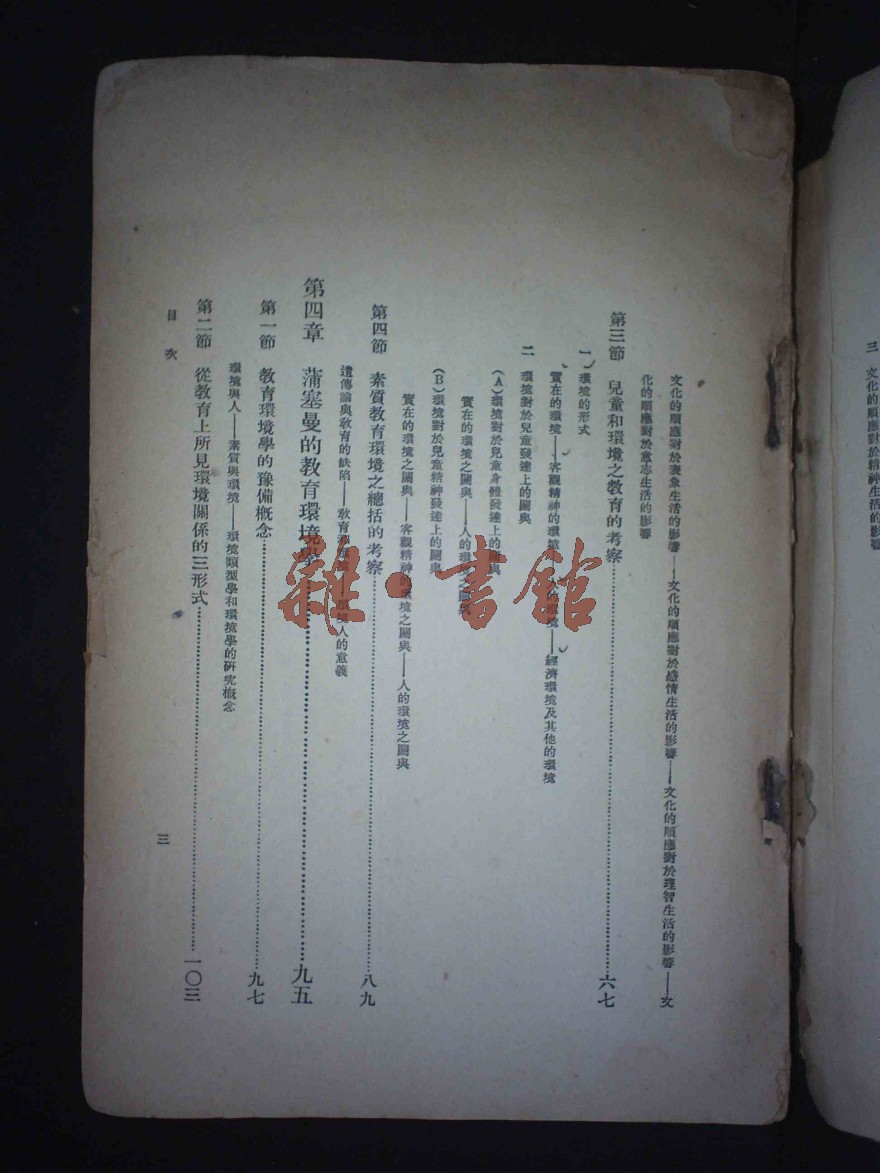 三　文化的順應對於精神生活的影響
文化的順應對於表象生活的影響——文化的順應對於感情生活的影響——文化的順應對於理智生活的影響——文
化的順應對於意志生活的影響
第三節　兒童和環境之教育的考察……六七
一　環境的形式
實在的環境——客觀精神的環境——人的環境——經濟環境及其他的環境
二　環境對於兒童發達上的關與
（A）環境對於兒童身體發達上的關與
實在的環境之關與——人的環境之關與
（B）環境對於兒童精神發達上的關與
實在的環境之關與——客觀精神的環境之關與——人的環境之關與
第四節　素質教育環境之總括的考察……八九
遺傳論與教育的缺陷——教育和環境——環境人的意義
第四章　蒲塞曼的教育環境學……九五
第一節　教育環境學的豫備概念……九七
環境與人——素質與環境——環境類型學和環境學的研究概念
第二節　從教育上所見環境關係的三形式……一〇三
目次
三
雜·書館